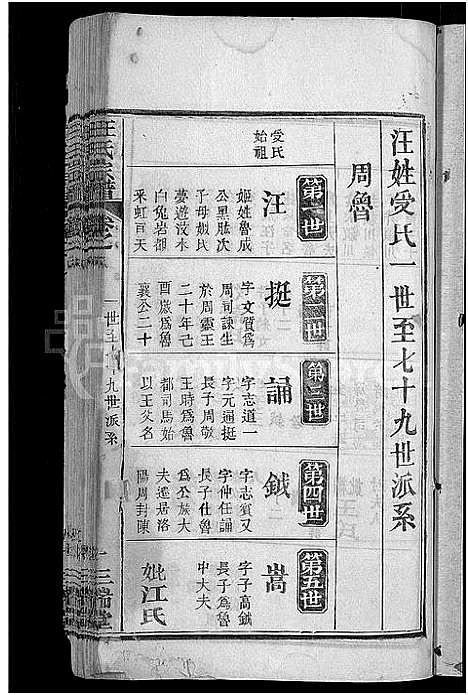 汪姓受氏一世至七十九世派系
周魯
受氏
始祖
第一世
汪
姬姓魯成
公黑肱次
子母姒氏
夢遊汶水
白兔岩鄉
釆虹亘天
第二世
挺
字文質爲
周司諫生
於周靈王
二十年己
酉歲爲魯
襄公二十
第三世
誦
字志道一
字元通挺
長子周敬
王時爲魯
都司馬始
以王父名
第四世
鉞
字志質又
字仲任誦
長子仕魯
爲公族大
夫遷居洛
陽周封陳
第五世
嵩
字子高鉞
長子爲魯
中大夫
妣江氏
汪氏宗譜
卷之一
一世至七十九世派系
三瑞堂